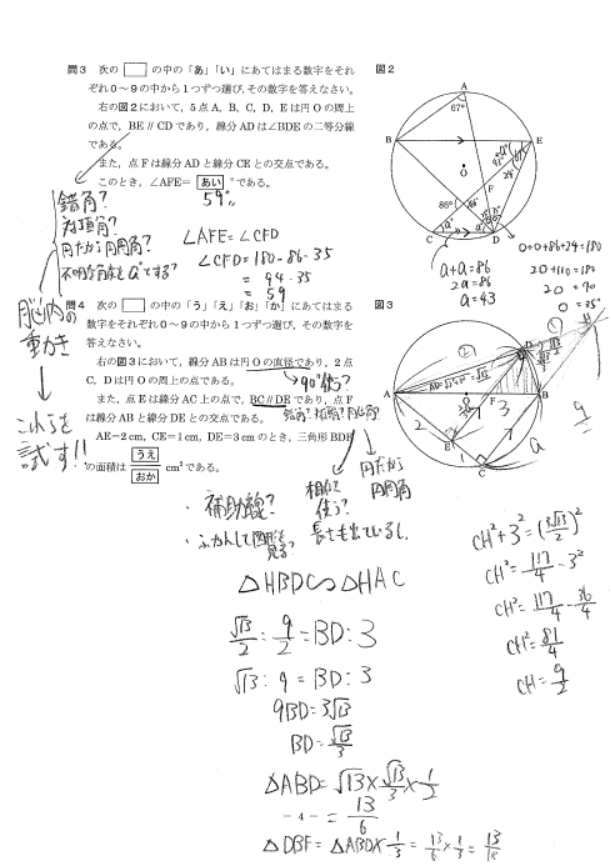 問3 次の□の中の「あ」「い」にあてはまる数字をそれ
ぞれ0〜9の中から1つずつ選び,その数字を答えなさい。
右の図2において,5点A,B,C,D,Eは円Oの周上
の点で,BE∥CDであり,線分ADは∠BDEの二等分線
である。
また,点Fは線分ADと線分CEとの交点である。
このとき,∠AFE=あい°である。
59°
錯角?
対頂角?
円だから円周角?
不明な角度を a°とする?
脳内の
動き
↓
これらを
試す!!
∠AFE=∠CFD
∠CFD=180-86-35
= 94-35
= 59
図2
A
67°
B
E
O
F
86°
C
D
a°
a+a=86
2a=86
a=43
○+○+86+24=180
2○+110=180
2○=70
○=35°
問4 次の□の中の「う」「え」「お」「か」にあてはまる
数字をそれぞれ0〜9の中から1つずつ選び,その数字を
答えなさい。
右の図3において,線分ABは円Oの直径であり,2点
C,Dは円Oの周上の点である。
90°使う?
また,点Eは線分AC上の点で,BC∥DEであり,点F
は線分ABと線分DEとの交点である。
AE=2cm,CE=1cm,DE=3cmのとき,三角形BDF
の面積は うえ/おか cm²である。
図3
A
B
C
D
E
F
O
H
2
1
3
円だから
円周角
相似を
使う?
長さも出ているし,
・補助線?
・ふかんして図形を
見る?
△HBDC∽△HAC
√13/2 : 9/2 = BD : 3
√13 : 9 = BD : 3
9BD=3√13
BD=√13/3
△ABD=√13×√13/3×1/2
= 13/6
△DBF=△ABD×1/3=13/6×1/3=13/18
CH²+3²=(3√13/2)²
CH²=117/4-3²
CH²=117/4-36/4
CH²=81/4
CH=9/2
- 4 -